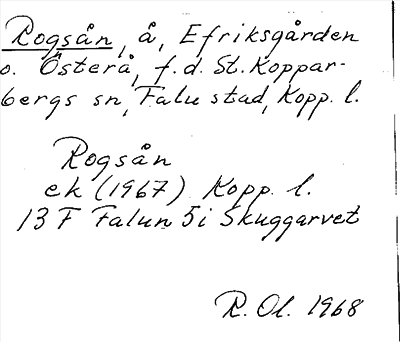 Rogsån, å, Efriksgården
o. Österå, f.d. St. Koppar-
bergs sn, Falu stad, Kopp. l.
Rogsån
ek (1967) Kopp. l.
13 F Falun 5i Skuggarvet
R. Ol. 1968